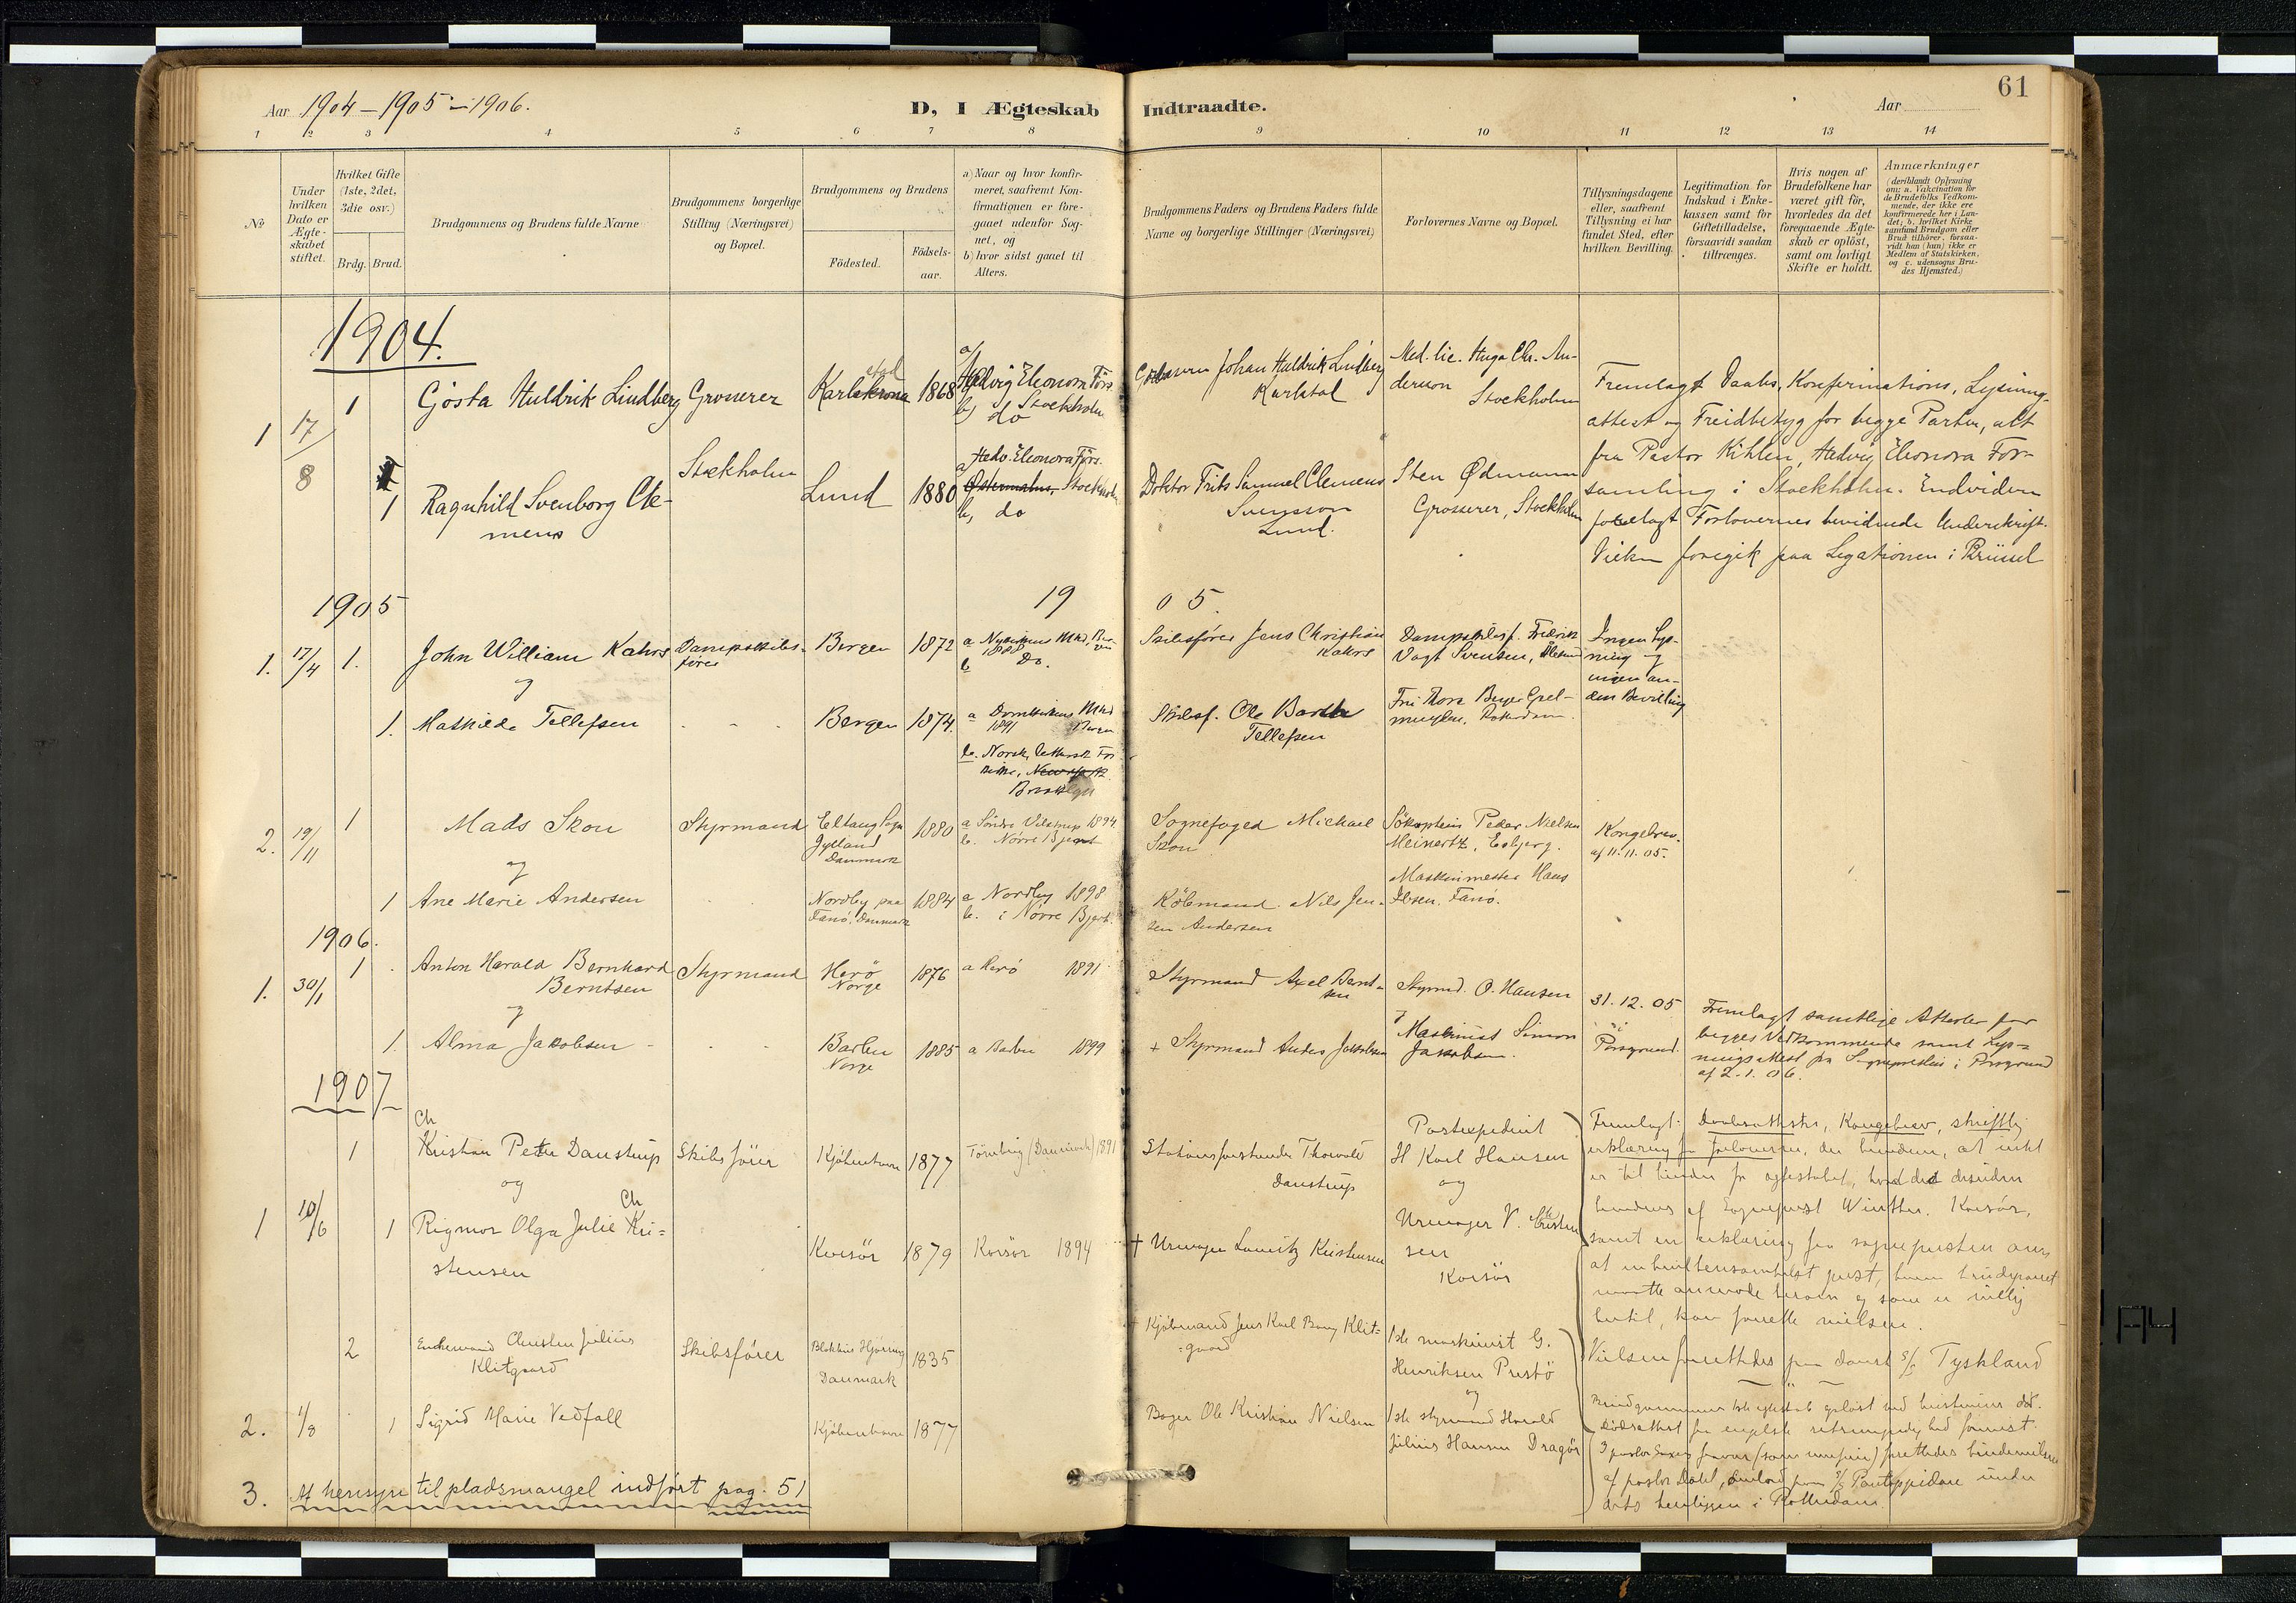 61
Aar 1904 – 1905 – 1906.
D, I Ægteskab Indtraadte.
Aar
1 2 3 4 5 6 7 8 9 10 11 12 13 14
No
Under
hvilken
Dato er
Ægte-
skabet
stiftet.
Hvilket Gifte
(1ste, 2det,
3die osv.)
Brdg. Brud.
Brudgommens og Brudens fulde Navne
Brudgommens borgerlige
Stilling (Næringsvei)
og Bopæl.
Brudgommens og Brudens
Födested.
Födsels-
aar.
a) Naar og hvor konfir-
meret, saafremt Kon-
firmationen er fore-
gaaet udenfor Sog-
net, og
b) hvor sidst gaaet til
Alters.
Brudgommens Faders og Brudens Faders fulde
Navne og borgerlige Stillinger (Næringsvei)
Forlovernes Navne og Bopæl.
Tillysningsdagene
eller, saafremt
Tillysning ei har
fundet Sted, efter
hvilken Bevilling.
Legitimation for
Indskud i Enke-
kassen samt for
Giftetilladelse,
forsaavidt saadan
tiltrænges.
Hvis nogen af
Brudefolkene har
været gift för,
hvorledes da det
foregaaende Ægte-
skab er oplöst,
samt om lovligt
Skifte er holdt.
Anmærkninger
(deriblandt Oplysning
om: a. Vakcination for
de Brudefolks Vedkom-
mende, der ikke ere
konfirmerede her i Lan-
det; b. hvilket Kirke-
samfund Brudgom eller
Brud tilhörer, forsaa-
vidt han (hun) ikke er
Medlem af Statskirken,
og c. udensogns Bru-
des Hjemsted.)
1904.
1 17/8 1 Gjösta Huldrik Lindberg Grosserer Karlskrona stad 1868
a/ Hedvig Eleonora Förs.
Stockholm
b) do
Johan Huldrik Lindberg
Karlstad
Med. lic. Hugo Chr. An-
derson
Stockholm
Fremlagt Daabs, Konfirmations, Lysning-
attest og Freidbetyg for begge Parter, alt
fra Pastor Kihlen, Hedvig Eleonora For-
samling i Stockholm. Endvidere
forelagt Forlovernes bevidnede Underskrift.
Vielsen foregik paa Legationen i Brüssel
Stockholm
1 Ragnhild Svenborg Cle-
mens
Lund 1880
a/ Hedv. Eleonora Förs.
Östermalm, Stockholm
b, do
Doktor Frits Samuel Clemens
Svensson
Lund.
Sten Ødmann
Grosserer, Stockholm
1905 19 05.
1. 17/4 1. John William Kahrs Dampskibs-
förer
Bergen 1872
a Nykirkens Mkd, Ber-
gen 1888
b Do.
Skibsförer Jens Christian
Kahrs
Dampskibsf. Fredrik
Vogt Svensen,
Ingen Lys-
ning og
ingen an-
den Bevilling
og
1. Mathilde Tellefsen - - - Bergen 1874.
a Domkirkens Mkd
1891 Bergen
b. Norsk luthersk Fri
kirke, New York
Brooklyn
Skibsf. Ole Barth
Tellefsen
2. 19/11 1 Mads Skou Styrmand Eltang Sogn
Jylland
Danmark
1880
a Söndre Vilstrup 1894
b. Nörre Bjert
Sognefoged Michael
Skou
Sökaptein Peder Nielsen
Meinertz, Esbjerg.
Kongebrev.
af 11.11.05.
og
1 Ane Marie Andersen
Nordby paa
Fanö. Danmark
1884
a Nordby 1898
b. i Nörre Bjert.
Köbmand Nils Jen-
sen Andersen
Maskinmester Hans
Ibsen. Fanö.
1906.
1. 30/1 1 Anton Harald Bernhard
Berntsen
Styrmand Herö
Norge
1876 a Herö 1891
Styrmand Axel Bernt-
sen
Styrmd. O. Hansen
31.12.05
i
Porsgrund.
Fremlagt samtlige Attester for
begges Vedkommende samt Lys-
ningsattest fra Sognepresten i Porsgrund
af 2-1.06.
og
1. Alma Jakobsen - - - Barbu
Norge
1885 a Barbu 1899
+ Styrmand Anders Jakobsen
og
Maskinist Simon
Jakobsen.
1907
1 10/6
1 Ch
Kristian Peter Danstrup Skibsförer Kjöbenhavn 1877 Törnbing (Danmark) 1891
Stationsforstander Thorvald
Danstrup
Postexpedient
H Karl Hansen
og
Urmager V. Christen
sen
Korsör
og
1 Rigmor Olga Julie Ch Kri=
stensen
Korsör 1879 Korsör 1894
+ Urmager Lauritz Kristensen
Fremlagt: Daabsattester, Kongebrev, skriftlig
erklæring fra forloverne, at intet
er til hinder for ægteskabet,
af Sognepræst Winther. Korsör,
samt en erklæring fra sognepresten om,
2. 1/8 2 Enkemand Christen Julius
Klitgaard
Skibsförer Blokhus Hjörring
Danmark
1835
+ Kjöbmand Jens Karl Bang Klit=
=gaard
1ste maskinist G.
Henriksen Prestö
og
1ste styrmand Harald
Julius Hansen Dragör
Vielsen forrettedes paa dansk s/s Tyskland
1 Sigrid Marie Vedfall
Kjöbenhavn 1877
Bager Ole Kristian Nielsen
af pastor Dahl, paa s/s Pontoppidan under
dets henliggen i Rotterdam.
3. Af hensyn til pladsmangel indfört pag. 51